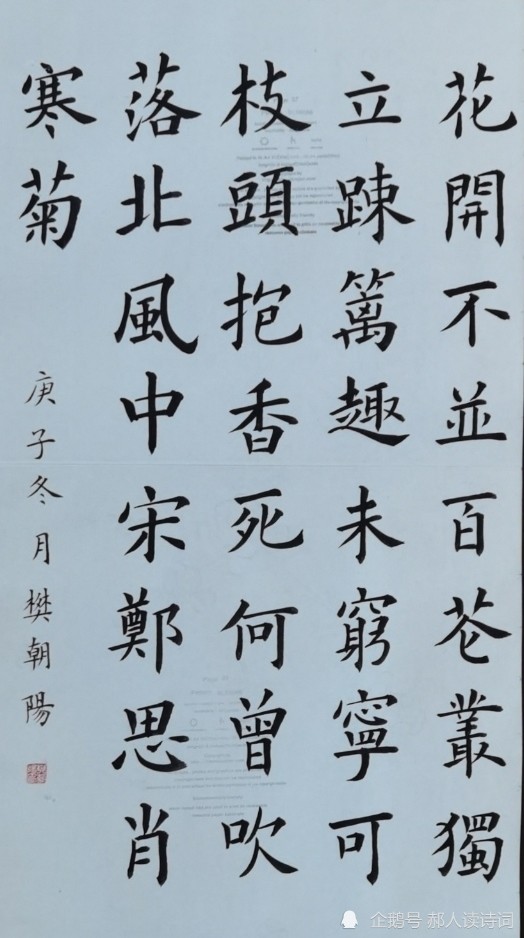 花開不並百花叢獨
立踈篱趣未窮寧可
枝頭抱香死何曾吹
落北風中宋鄭思肖
寒菊
庚子冬月樊朝陽
企鹅号 郝人读诗词